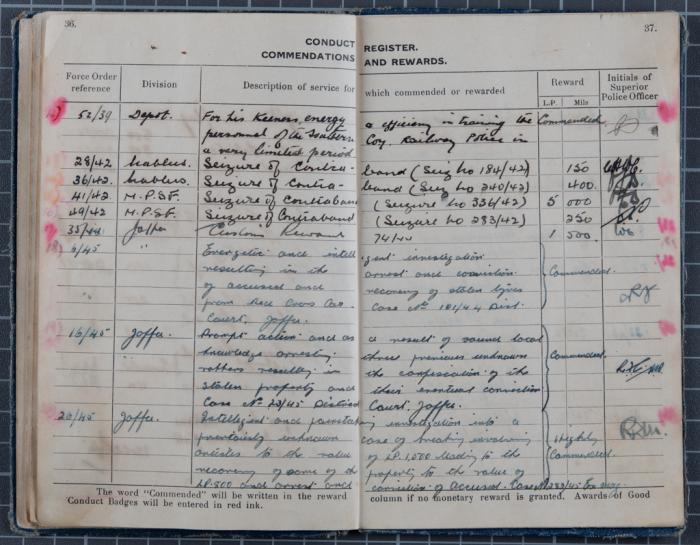 36.
37.
CONDUCT REGISTER.
COMMENDATIONS AND REWARDS.
Force Order reference
Division
Description of service for which commended or rewarded
Reward
L.P. Mils
Initials of Superior Police Officer
52/39 Depot. For his keenness, energy & efficiency in training the Commended.
personnel of the Southern Coy. Railway Police in
a very limited period
28/42 Nablus. Seizure of Contra-band (Seiz No 184/42) 150
36/42. Nablus. Seizure of Contra-band (Seiz No 240/42) 400.
41/42 M.P.S.F. Seizure of Contraband (Seizure No 336/42) 5 000
49/42 M.P.S.F. Seizure of Contraband (Seizure No 283/42) 250
35/44 Jaffa Customs Reward 74/44 1 500.
6/45 " Energetic and intelligent investigation
resulting in the arrest and conviction Commended.
of accused and recovery of stolen tyres
from Red Cross Car. Case No 181/44 Dist.
Court, Jaffa.
16/45 Jaffa. Prompt action and as a result of sound local
knowledge arresting three previous unknown Commended.
robbers resulting in the confiscation of the
stolen property and their eventual conviction
Case No 23/45 District Court, Jaffa.
20/45 Jaffa. Intelligent and painstaking investigation into a
previously unknown case of breaking involving Highly
articles to the value of LP.1,000 leading to the Commended.
recovery of some of the property to the value of
LP.800 and arrest and conviction of Accused. Case No 283/45
The word "Commended" will be written in the reward column if no monetary reward is granted. Awards of Good
Conduct Badges will be entered in red ink.